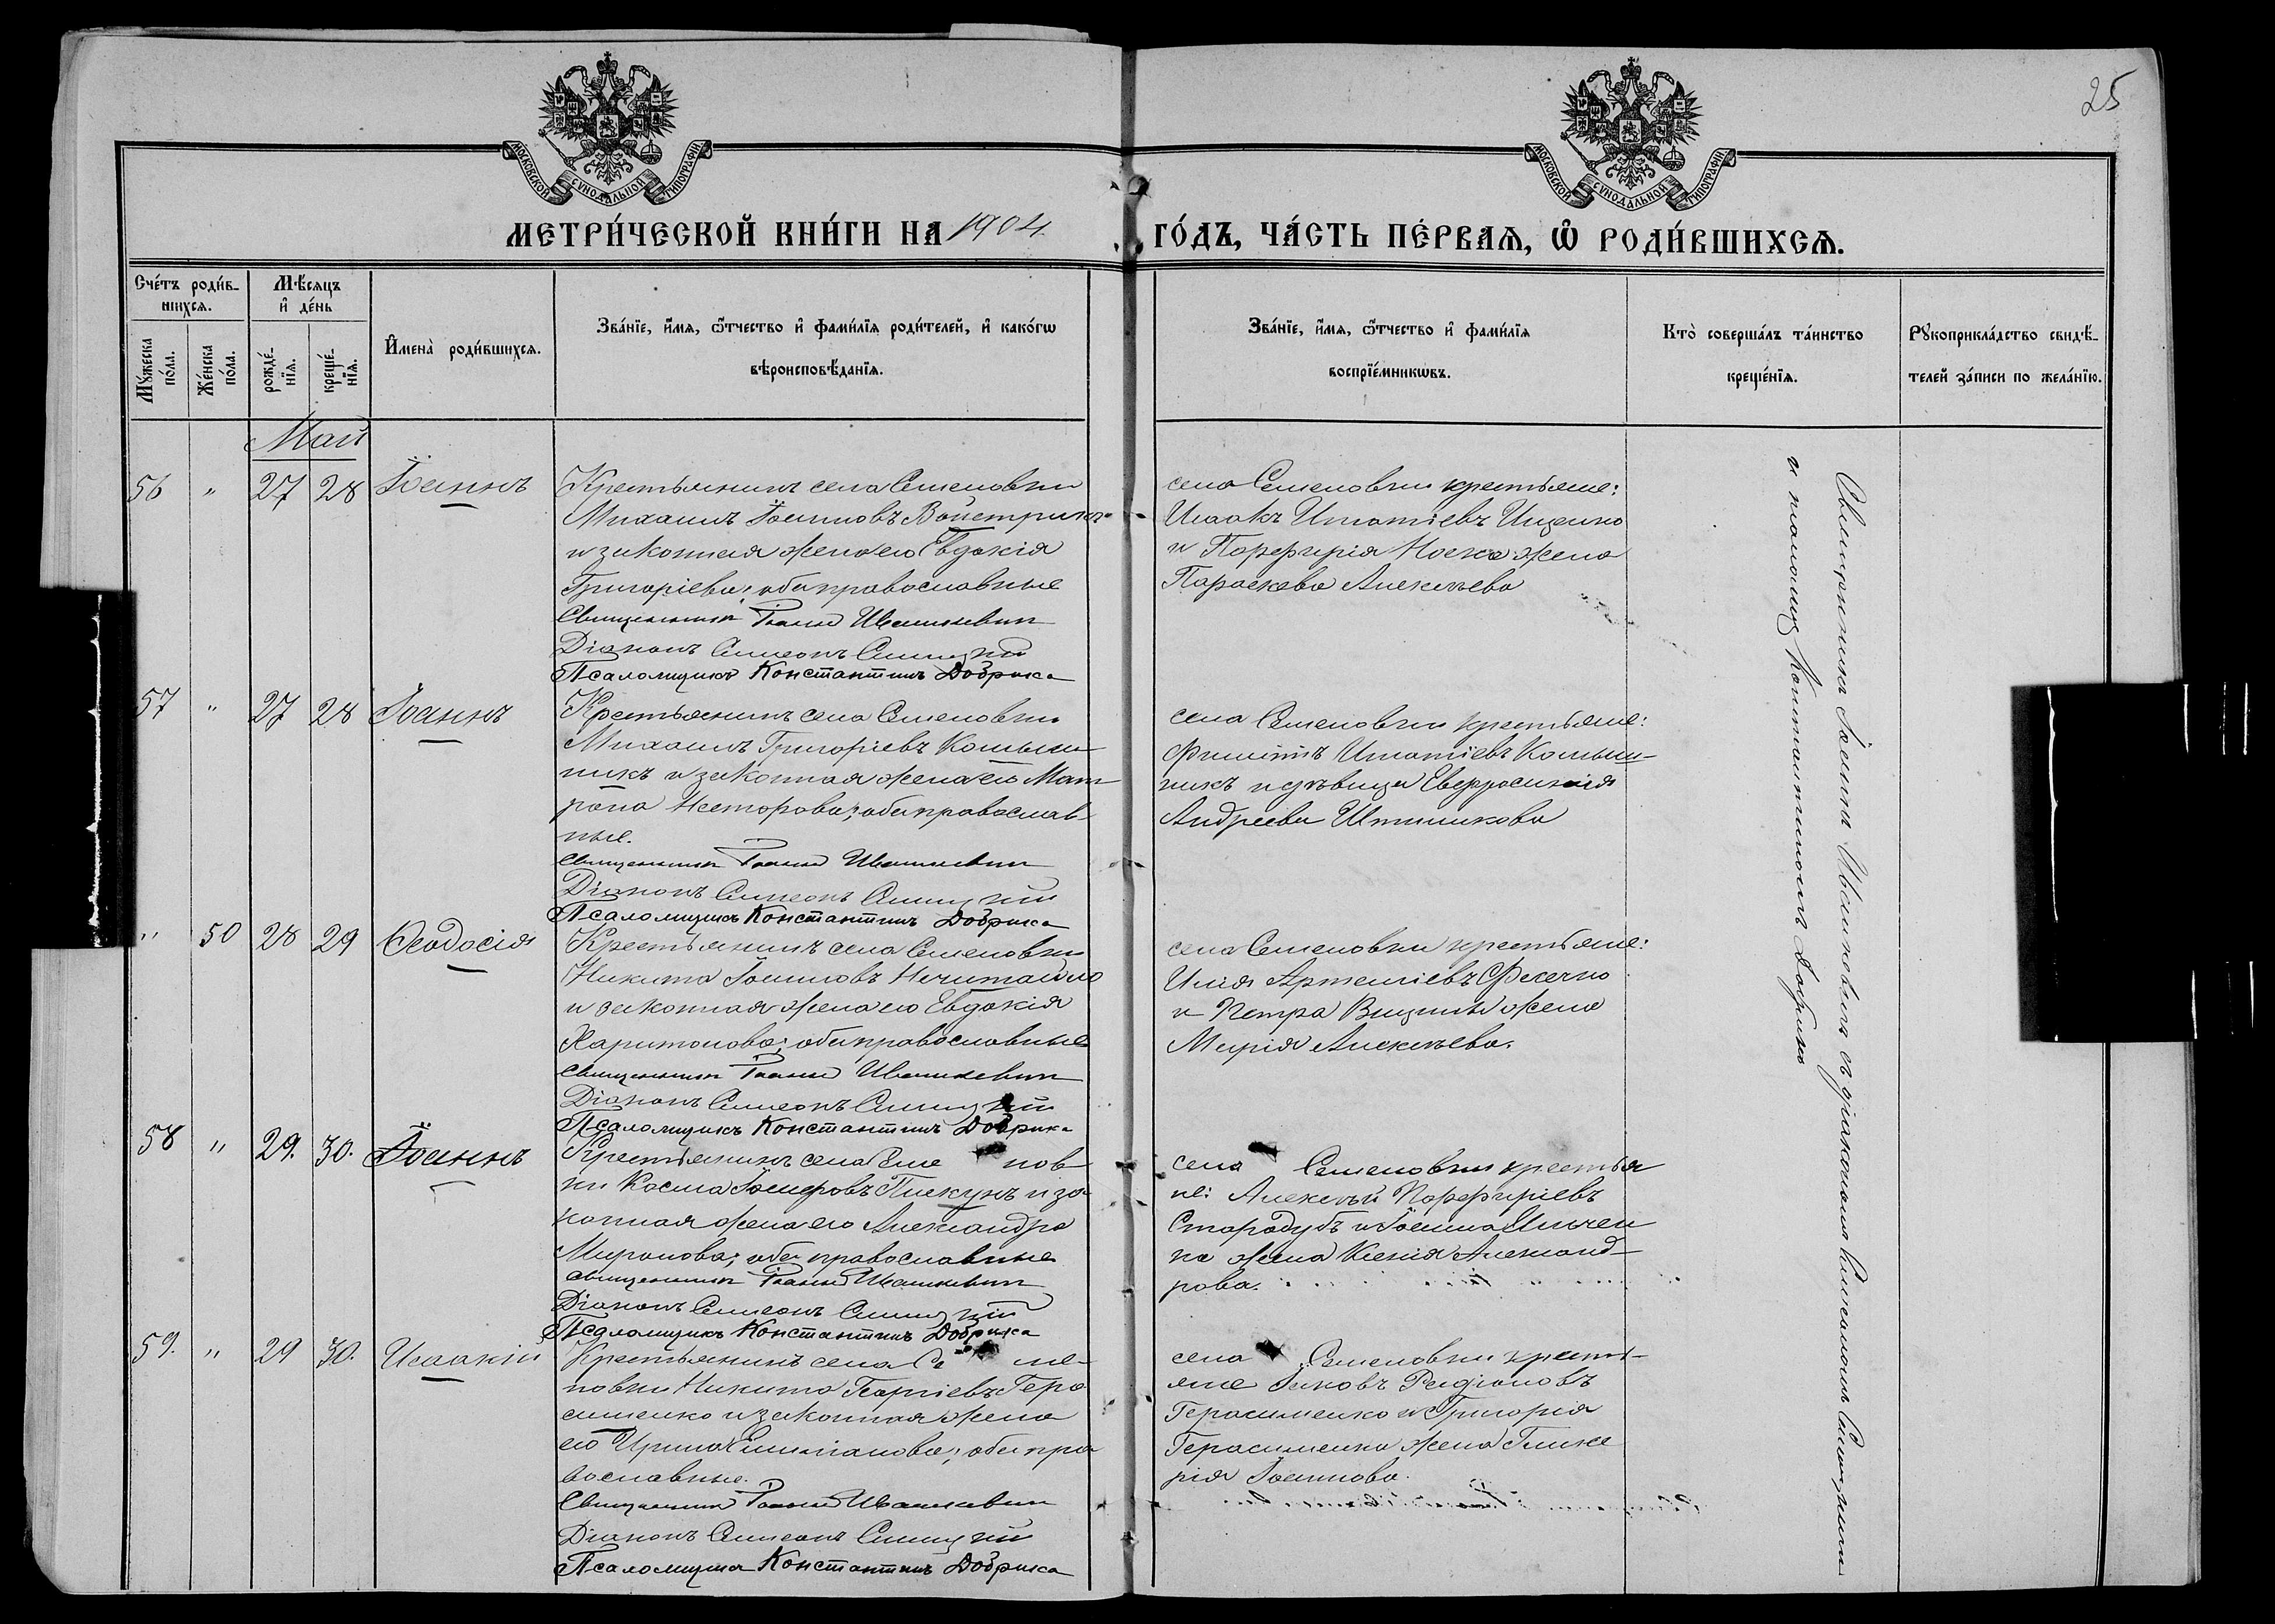 25
МОСКОВСКОЙ СѴНОДАЛЬНОЙ ТИПОГРАФІИ
МОСКОВСКОЙ СѴНОДАЛЬНОЙ ТИПОГРАФІИ
МЕТРИ́ЧЕСКОЙ КНИ́ГИ НА 1904. ГО́ДЪ, ЧА́СТЬ ПЕ́РВАѦ, Ѽ РОДИ́ВШИХСѦ.
Сче́тъ роди́в-
шихсѧ.
Мѣ́сѧцъ
и҆ де́нь
Мꙋ́жеска
по́ла.
Же́нска
по́ла.
рожде́-
нїѧ.
креще́-
нїѧ.
И҆мена̀ роди́вшихсѧ.
Зва́нїе, и҆́мѧ, ѻ҆́тчество и҆ фами́лїѧ роди́телей, и҆ како́гѡ
вѣроисповѣ́данїѧ.
Зва́нїе, и҆́мѧ, ѻ҆́тчество и҆ фами́лїѧ
воспрїе́мникѡвъ.
Кто̀ соверша́лъ та́инство
креще́нїѧ.
Рꙋкоприкла́дство свидѣ́-
телей за́писи по жела́нїю.
Май
56 " 27 28 Іоаннъ
Крестьянинъ села Семеновки
Михаилъ Іоанновъ
и законная жена его Евдокія
Григоріева; оба православные
Священникъ Іоаннъ Ивашкевич
Діаконъ Симеонъ Синицкій
Псаломщикъ Константинъ Добрика
села Семеновки крестьяне:
Исаакъ Игнатіевъ Ищенко
и Порфирія Носка жена
Параскева Алексѣева
57 " 27 28 Іоаннъ
Крестьянинъ села Семеновки
Михаилъ Григоріевъ
никъ и законная жена его Мат
рона Несторова; оба православ-
ные.
Священникъ Іоаннъ Ивашкевич
Діаконъ Симеонъ Синицкій
Псаломщикъ Константинъ Добрика
села Семеновки крестьяне:
Филиппъ Игнатіевъ
никъ и дѣвица Евфросинія
Андреева
" 50 28 29 Ѳеодосія
Крестьянинъ села Семеновки
Никита Іоанновъ Нечитайло
и законная жена его Евдокія
Харитонова; оба православные
Священникъ Іоаннъ Ивашкевич
Діаконъ Симеонъ Синицкій
Псаломщикъ Константинъ Добрика
села Семеновки крестьяне:
Илія Артеміевъ
и Петра жена
Марія Алексѣева.
58 " 29. 30. Іоаннъ
Крестьянинъ села Семе нов-
ки Косма Іосифовъ Пискунъ и за-
конная жена его Александра
Миронова; оба православные
Священникъ Іоаннъ Ивашкевич
Діаконъ Симеонъ Синицкій
Псаломщикъ Константинъ Добрика
села Семеновки крестья
не: Алексѣй Порфиріевъ
Стародубъ и Іоанна
ка жена Ксенія Александ-
рова.
59. " 29 30. Исаакій
Крестьянинъ села Се ме-
новки Никита Георгіевъ Гера
сименко и законная жена
его Ирина Емиліанова; оба пра
вославные.
Священникъ Іоаннъ Ивашкевич
Діаконъ Симеонъ Синицкій
Псаломщикъ Константинъ Добрика
села Семеновки кресть-
яне Іаковъ Родіоновъ
Герасименко и Григорія
Герасименка жена Глике
рія Іоаннова.
Священникъ Іоаннъ Ивашкевичъ съ діакономъ Симеономъ Синицкимъ
и псаломщ. Константиномъ Добрика